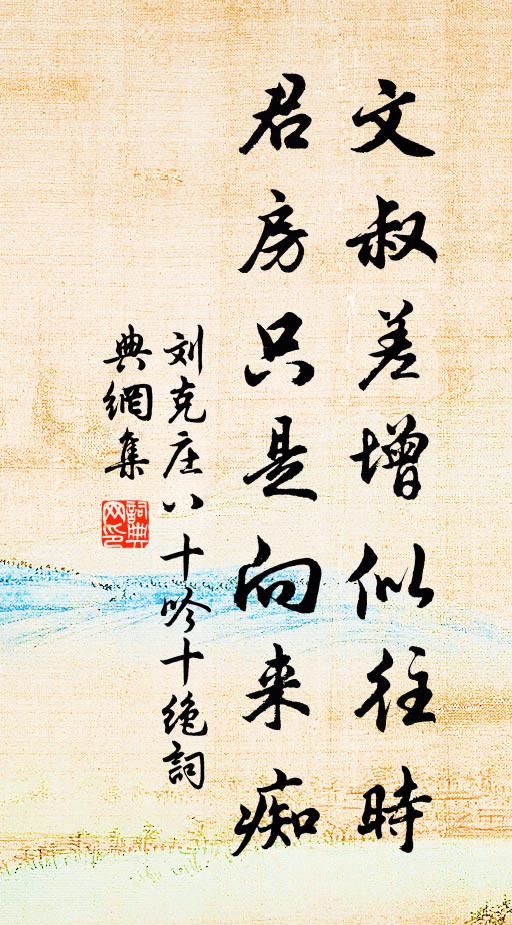 文叔差增似往時
君房只是向来痴
刘克庄八十吟十绝詞
典網集
詞典
网印